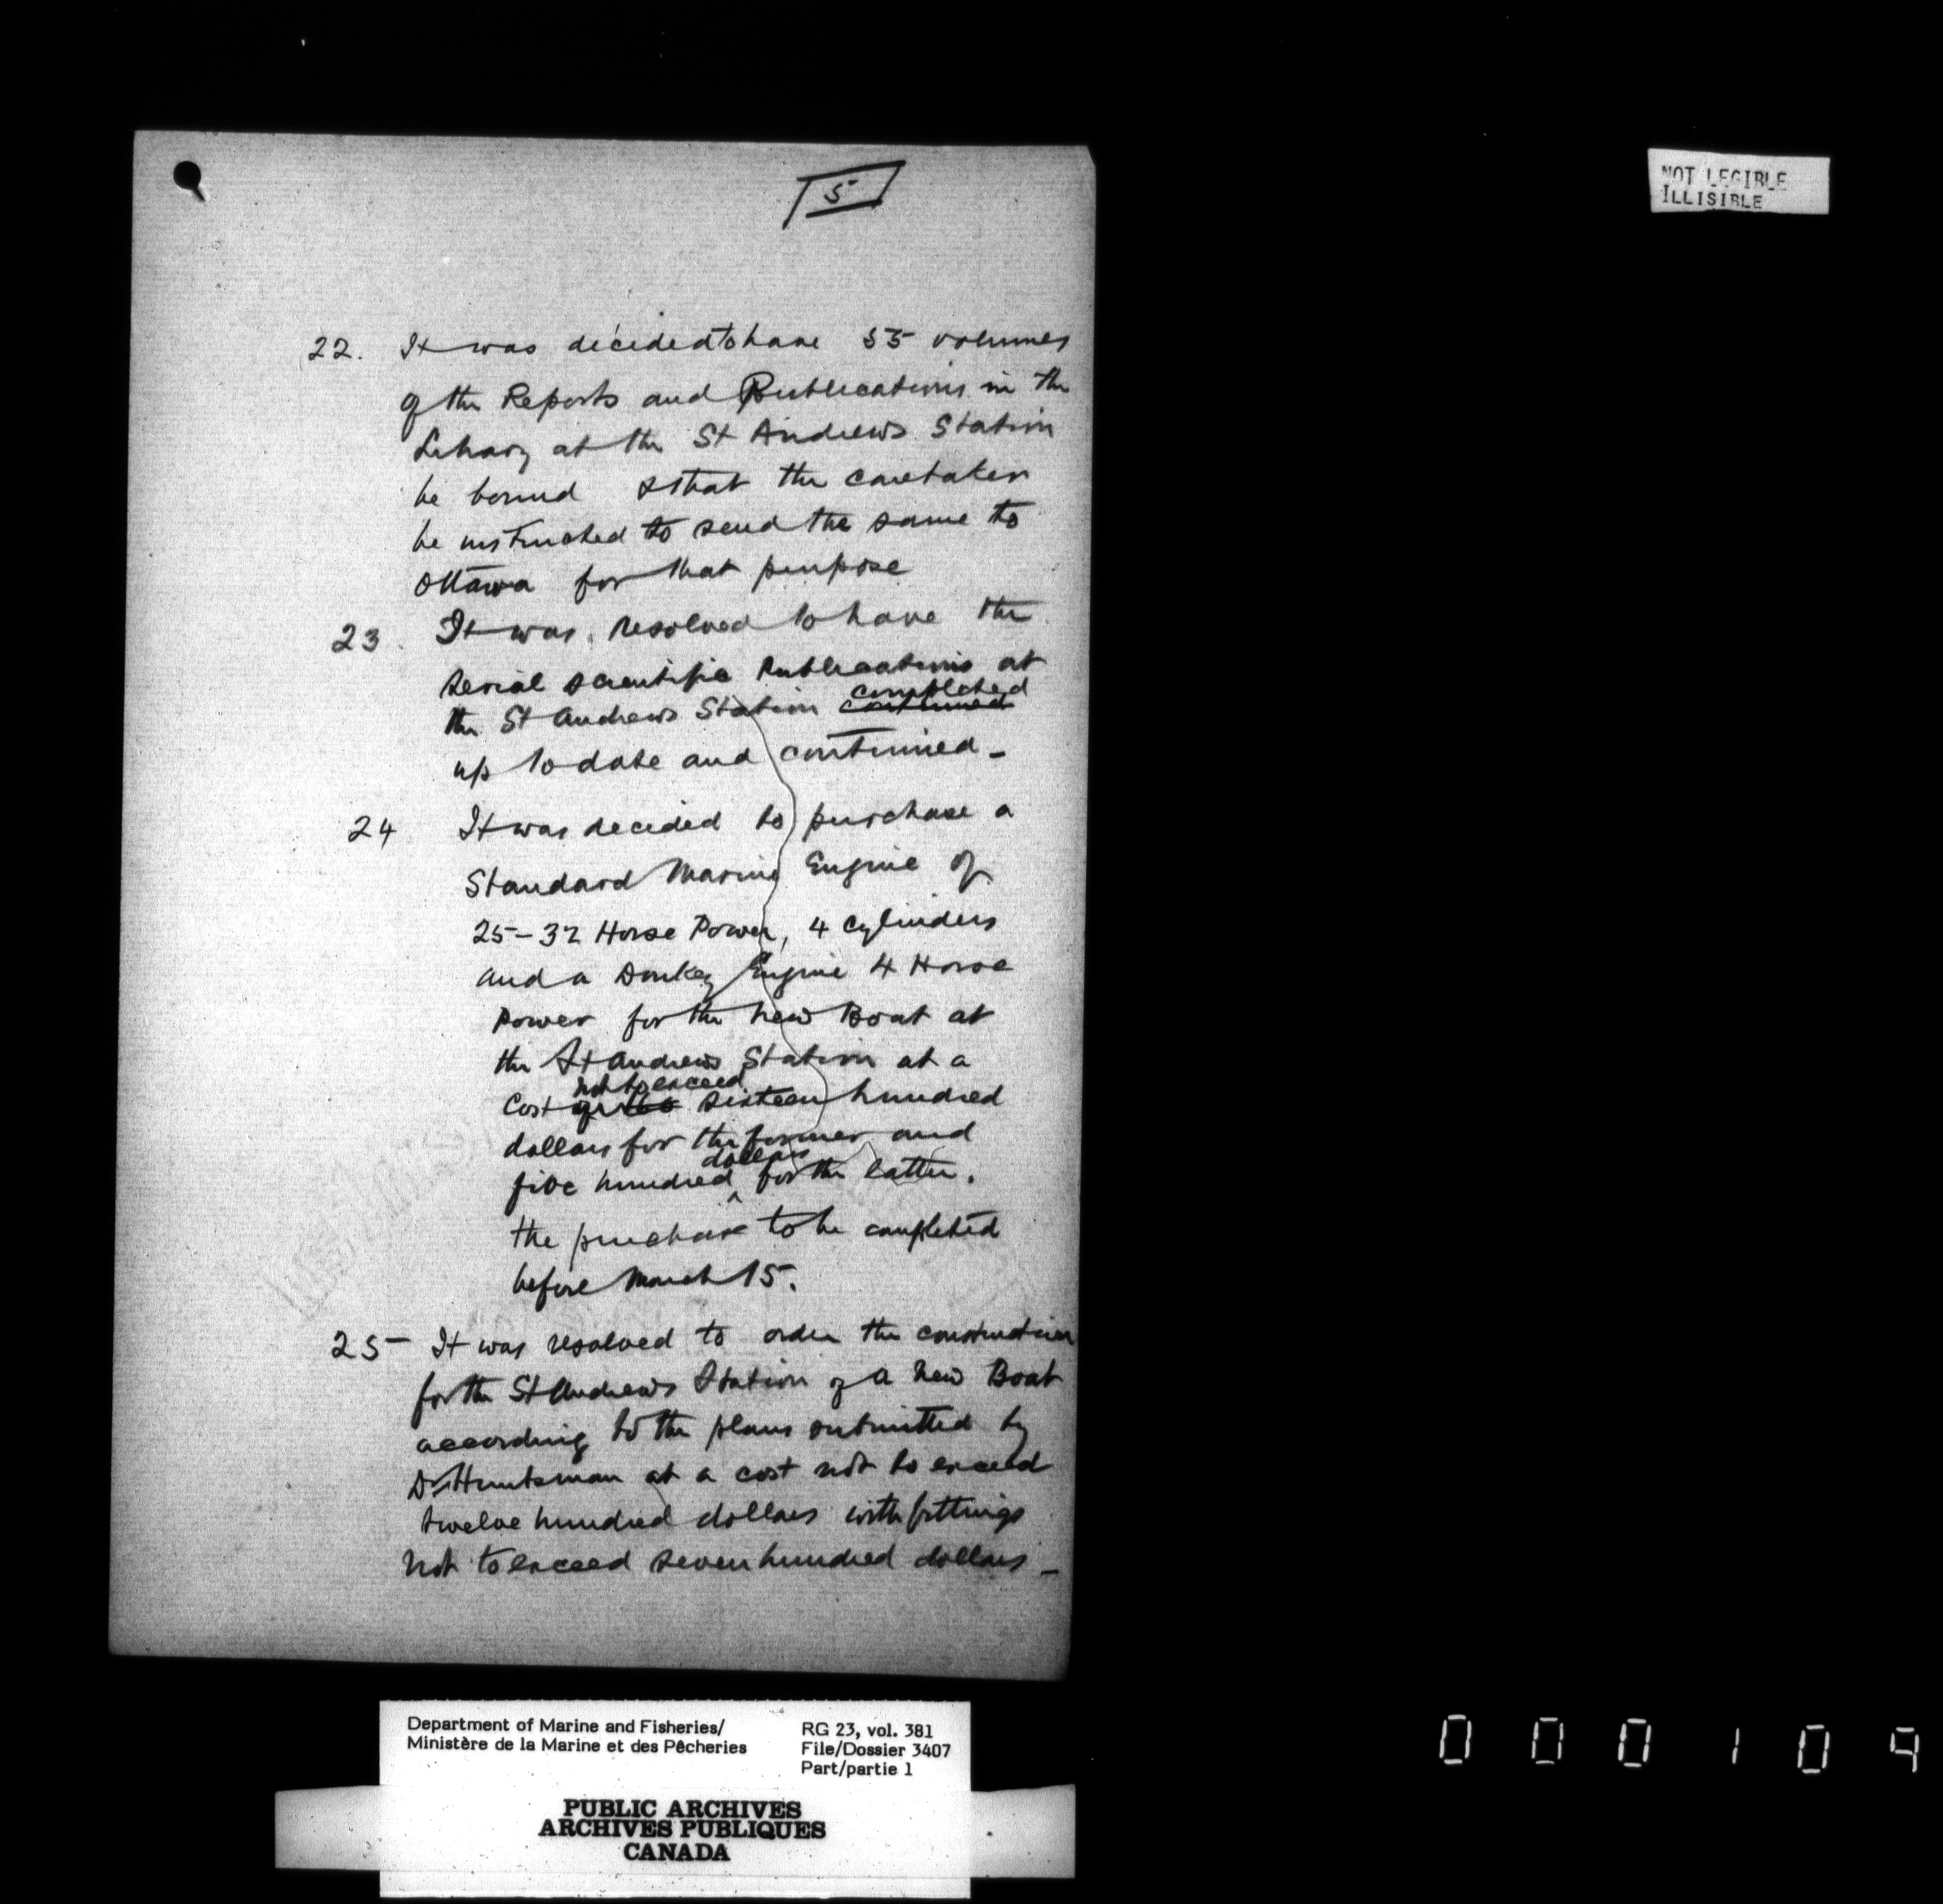 5
NOT LEGIBLE
ILLISIBLE
22. It was decided to have 55 volumes
of the Reports and Publications in the
Library at the St Andrews Station
be bound & that the caretaker
be instructed to send the same to
Ottawa for that purpose
23. It was resolved to have the
serial scientific Publications at
completed
the St Andrews Station continued
up to date and continued -
24 It was decided to purchase a
Standard Marine Engine of
25-32 Horse Power, 4 cylinders
and a Donkey Engine 4 Horse
Power for the new Boat at
the St Andrews Station at a
not to exceed
Cost sixteen hundred
dollars for the former and
dollars
five hundred ^ for the latter.
the purchase to be completed
before March 15.
25- It was resolved to order the construction
for the St Andrews Station of a new Boat
according to the plans submitted by
Dr Huntsman at a cost not to exceed
twelve hundred dollars with fittings
not to exceed seven hundred dollars -
Department of Marine and Fisheries/
Ministère de la Marine et des Pêcheries
RG 23, vol. 381
File/Dossier 3407
Part/partie 1
PUBLIC ARCHIVES
ARCHIVES PUBLIQUES
CANADA
000109